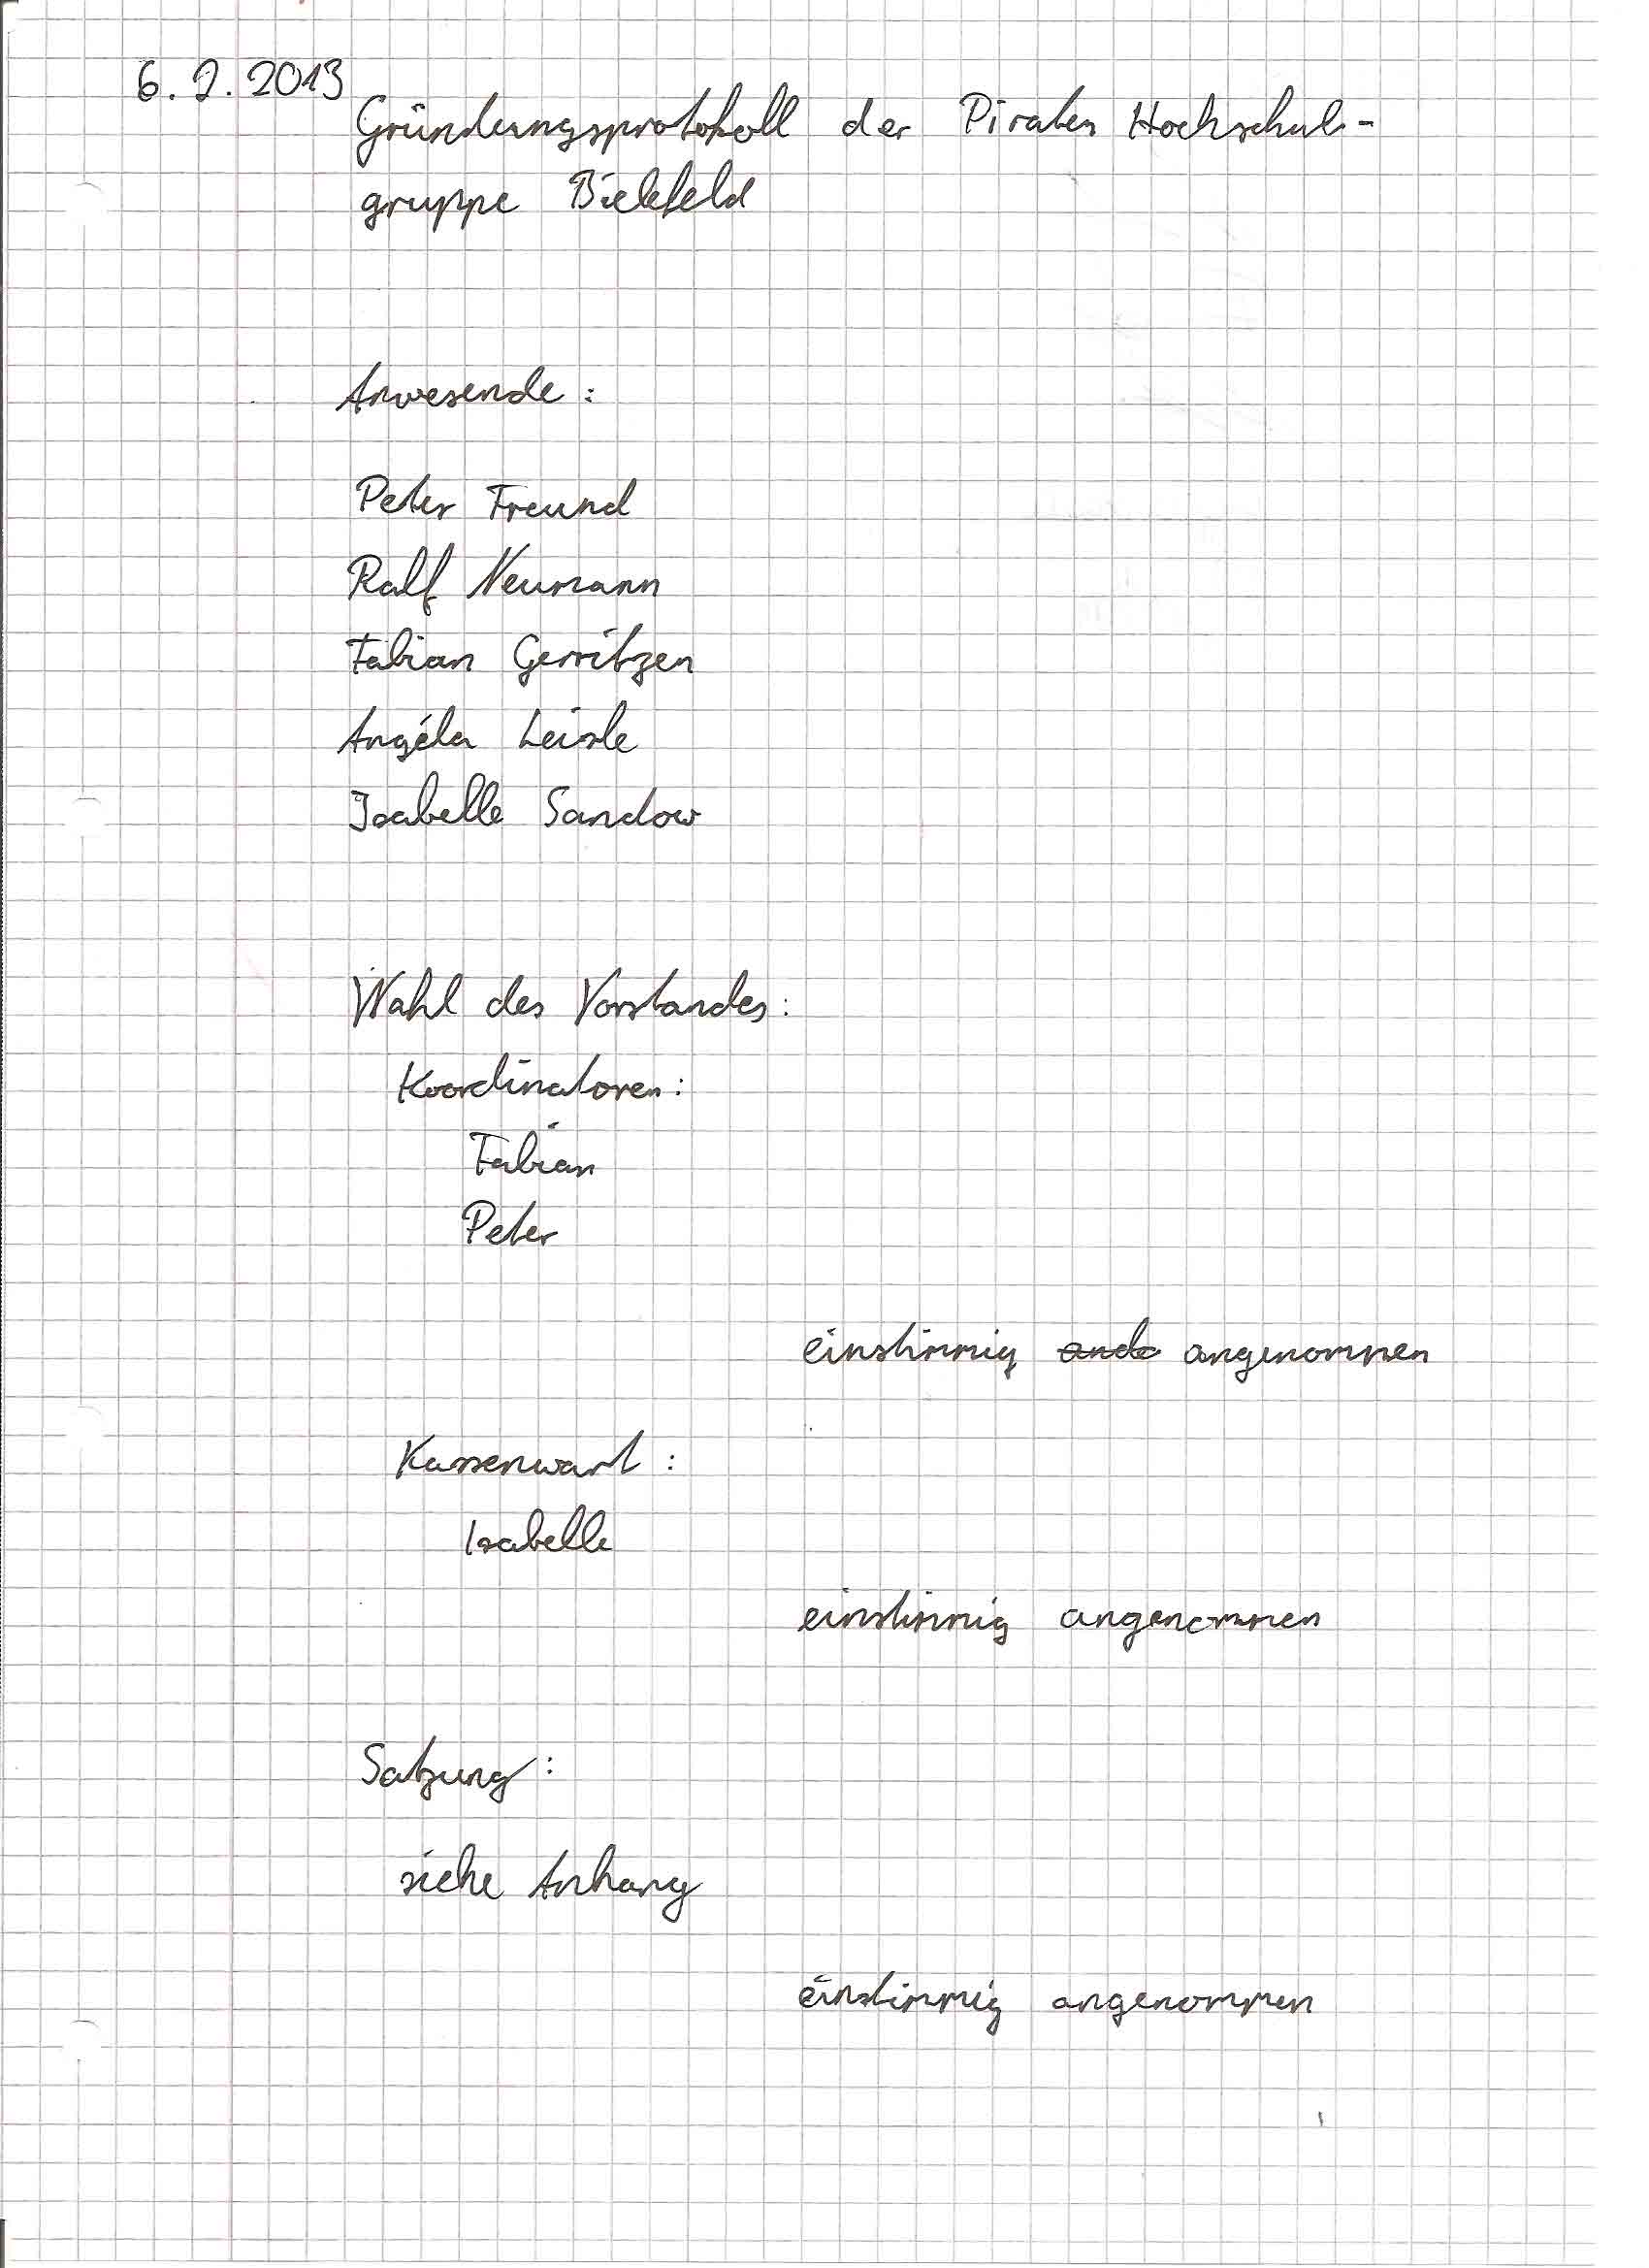 6.2.2013
Gründungsprotokoll der Piraten Hochschul-
gruppe Bielefeld
Anwesende:
Peter Freund
Ralf Neumann
Fabian Gerritzen
Angéla Leisle
Isabelle Sandow
Wahl des Vorstandes:
Koordinatoren:
Fabian
Peter
einstimmig angenommen
Kassenwart:
Isabelle
einstimmig angenommen
Satzung:
siehe Anhang
einstimmig angenommen